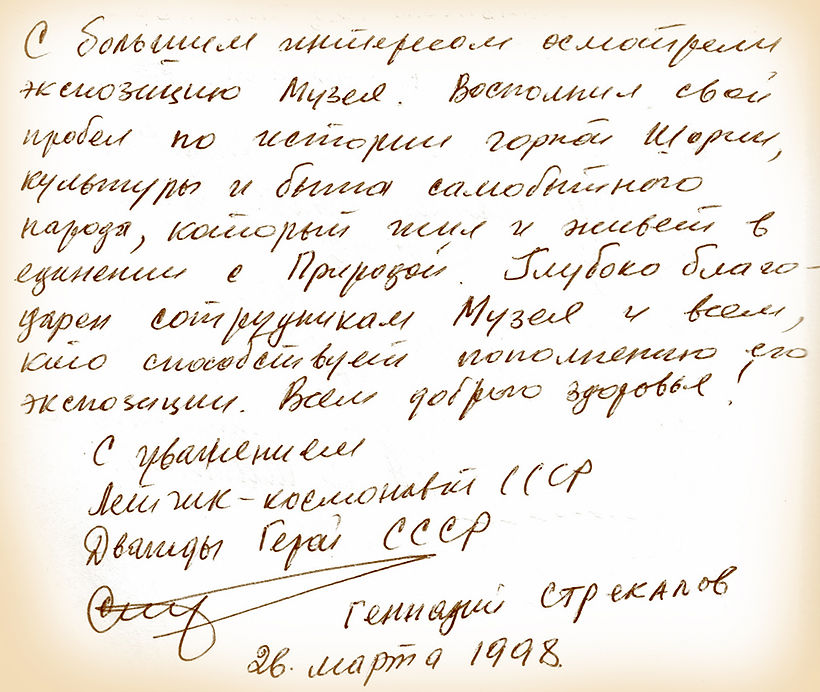 С большим интересом осмотрели
экспозицию Музея. Восполнил свой
пробел по истории горной Шории,
культуры и быта самобытного
народа, который жил и живет в
единении с Природой. Глубоко благо-
дарен сотрудникам Музея и всем,
кто способствует пополнению его
экспозиции. Всем доброго здоровья!
С уважением
Летчик-космонавт СССР
Дважды Герой СССР
Геннадий Стрекалов
26. марта 1998.